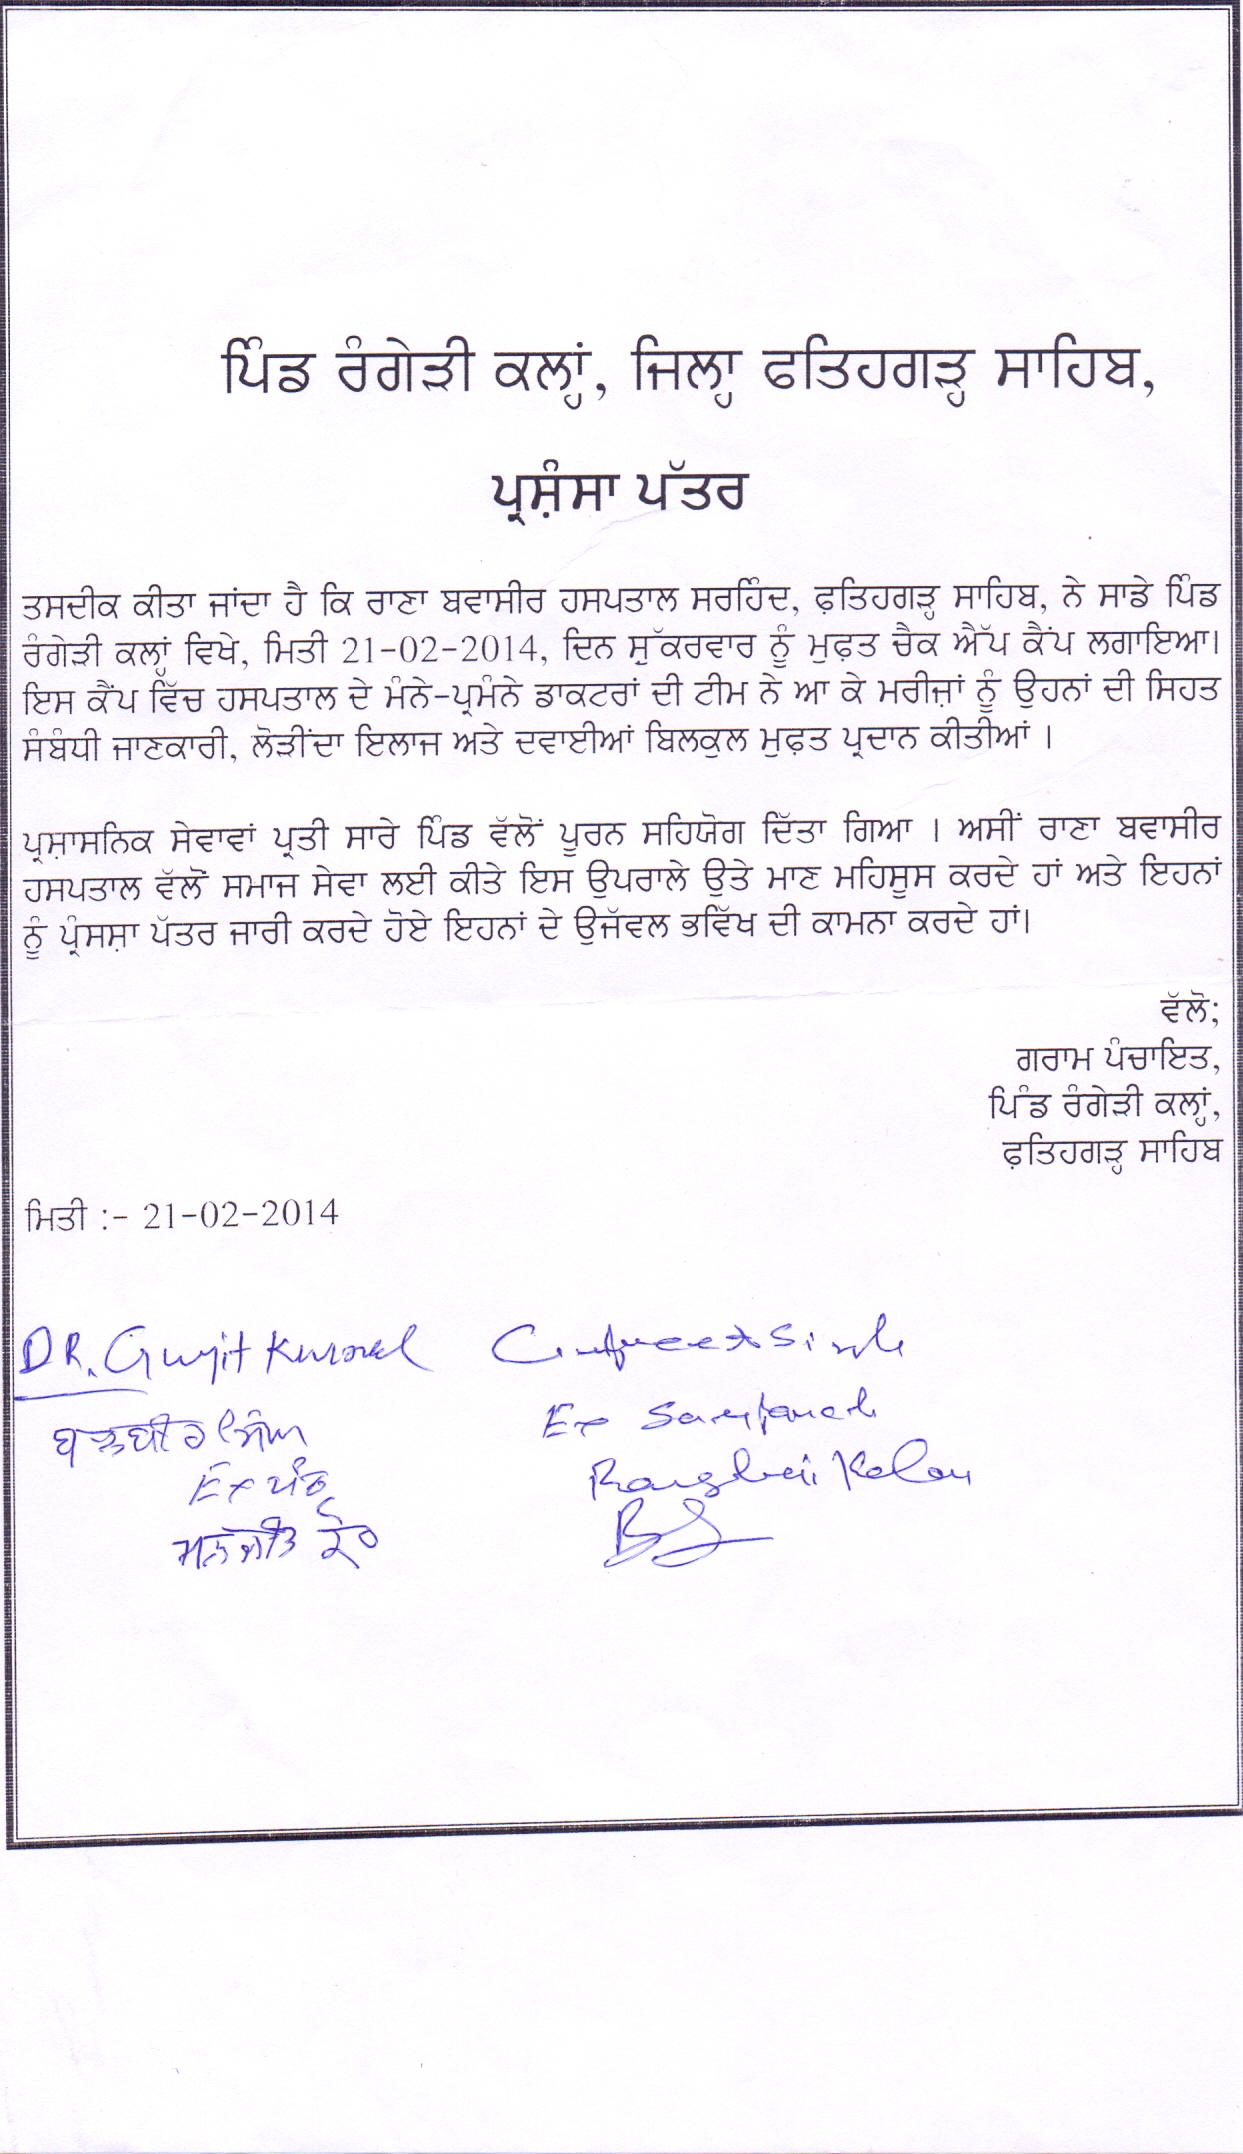 ਪਿੰਡ ਰੰਗੇੜੀ ਕਲ੍ਹਾਂ, ਜਿਲ੍ਹਾ ਫਤਿਹਗੜ੍ਹ ਸਾਹਿਬ,
ਪ੍ਰਸ਼ੰਸਾ ਪੱਤਰ
ਤਸਦੀਕ ਕੀਤਾ ਜਾਂਦਾ ਹੈ ਕਿ ਰਾਣਾ ਬਵਾਸੀਰ ਹਸਪਤਾਲ ਸਰਹਿੰਦ, ਫ਼ਤਿਹਗੜ੍ਹ ਸਾਹਿਬ, ਨੇ ਸਾਡੇ ਪਿੰਡ
ਰੰਗੇੜੀ ਕਲ੍ਹਾਂ ਵਿਖੇ, ਮਿਤੀ 21-02-2014, ਦਿਨ ਸ਼ੁੱਕਰਵਾਰ ਨੂੰ ਮੁਫ਼ਤ ਚੈਕ ਐੱਪ ਕੈਂਪ ਲਗਾਇਆ।
ਇਸ ਕੈਂਪ ਵਿੱਚ ਹਸਪਤਾਲ ਦੇ ਮੰਨੇ-ਪ੍ਰਮੰਨੇ ਡਾਕਟਰਾਂ ਦੀ ਟੀਮ ਨੇ ਆ ਕੇ ਮਰੀਜ਼ਾਂ ਨੂੰ ਉਹਨਾਂ ਦੀ ਸਿਹਤ
ਸੰਬੰਧੀ ਜਾਣਕਾਰੀ, ਲੋੜੀਂਦਾ ਇਲਾਜ ਅਤੇ ਦਵਾਈਆਂ ਬਿਲਕੁਲ ਮੁਫ਼ਤ ਪ੍ਰਦਾਨ ਕੀਤੀਆਂ ।
ਪ੍ਰਸ਼ਾਸਨਿਕ ਸੇਵਾਵਾਂ ਪ੍ਰਤੀ ਸਾਰੇ ਪਿੰਡ ਵੱਲੋਂ ਪੂਰਨ ਸਹਿਯੋਗ ਦਿੱਤਾ ਗਿਆ । ਅਸੀਂ ਰਾਣਾ ਬਵਾਸੀਰ
ਹਸਪਤਾਲ ਵੱਲੋਂ ਸਮਾਜ ਸੇਵਾ ਲਈ ਕੀਤੇ ਇਸ ਉਪਰਾਲੇ ਉਤੇ ਮਾਣ ਮਹਿਸੂਸ ਕਰਦੇ ਹਾਂ ਅਤੇ ਇਹਨਾਂ
ਨੂੰ ਪ੍ਰੰਸਸ਼ਾ ਪੱਤਰ ਜਾਰੀ ਕਰਦੇ ਹੋਏ ਇਹਨਾਂ ਦੇ ਉਜੱਵਲ ਭਵਿੱਖ ਦੀ ਕਾਮਨਾ ਕਰਦੇ ਹਾਂ।
ਵੱਲੋ;
ਗਰਾਮ ਪੰਚਾਇਤ,
ਪਿੰਡ ਰੰਗੇੜੀ ਕਲ੍ਹਾਂ,
ਫ਼ਤਿਹਗੜ੍ਹ ਸਾਹਿਬ
ਮਿਤੀ :- 21-02-2014
DR. Gurjit Gurpreet Singh
ਬਲਬੀਰ ਸਿੰਘ Ex Sarpanch
Ex ਪੰਚ Kalan
ਮਨਜੀਤ ਕੌਰ